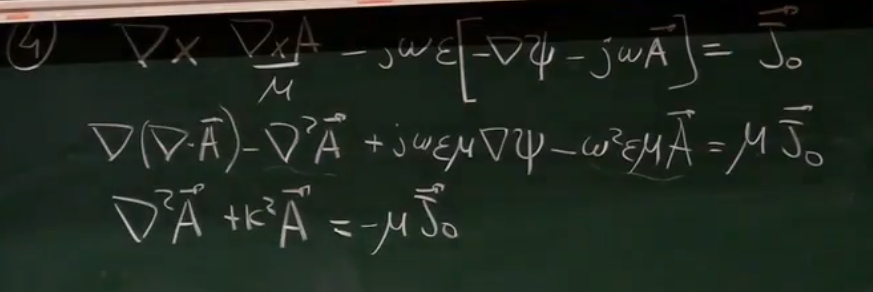 ④ ∇× (∇×A)/μ − jωε[−∇ψ − jωA⃗] = J⃗₀
∇(∇·A⃗) − ∇²A⃗ + jωεμ∇ψ − ω²εμA⃗ = μJ⃗₀
∇²A⃗ + k²A⃗ = −μJ⃗₀